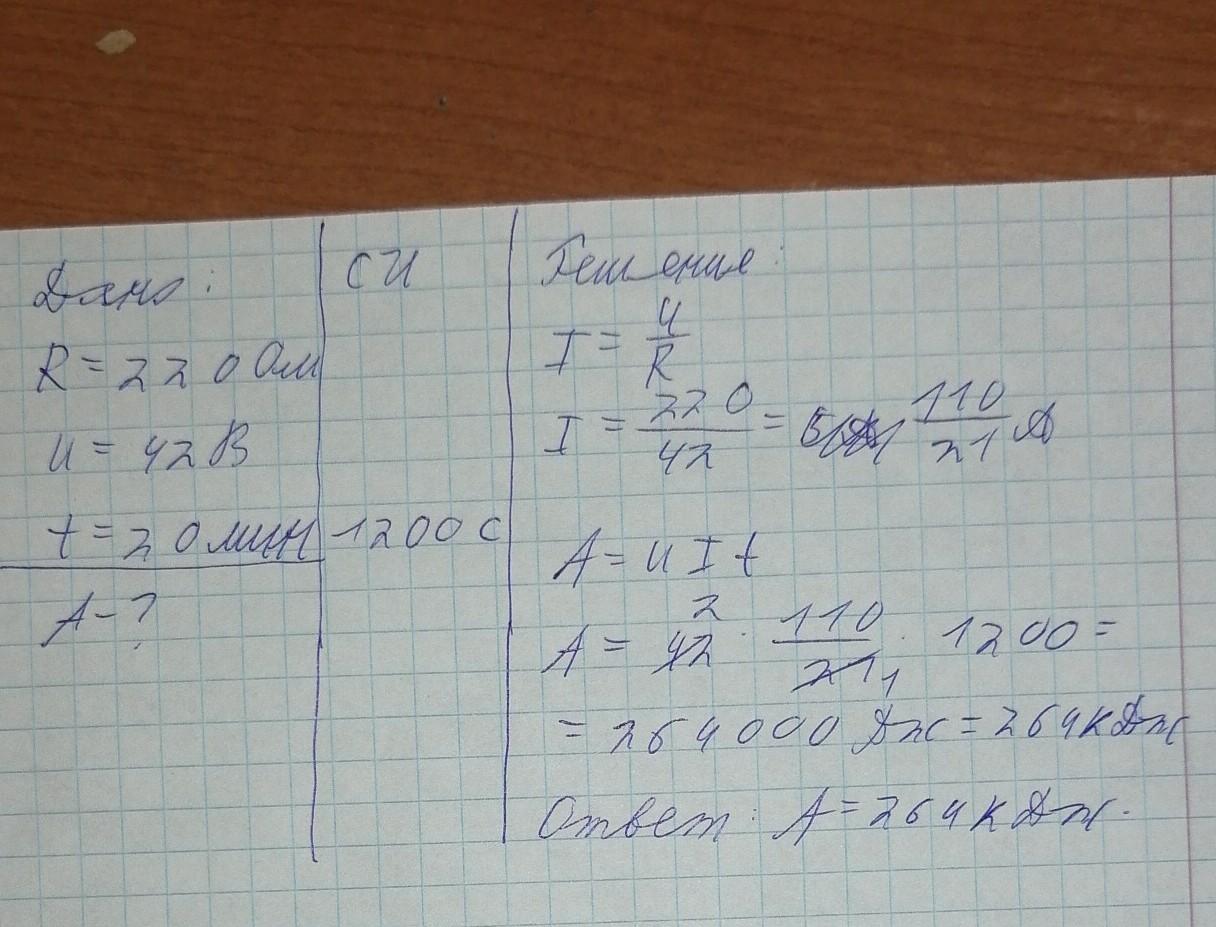 Дано:
R = 220 Ом
U = 42 В
t = 20 мин
A - ?
СИ
1200 с
Решение:
I = U/R
I = 220/42 = 110/21 А
A = U I t
A = 42 2 · 110/21 1 · 1200 =
= 264000 Дж = 264 кДж
Ответ: A = 264 кДж.